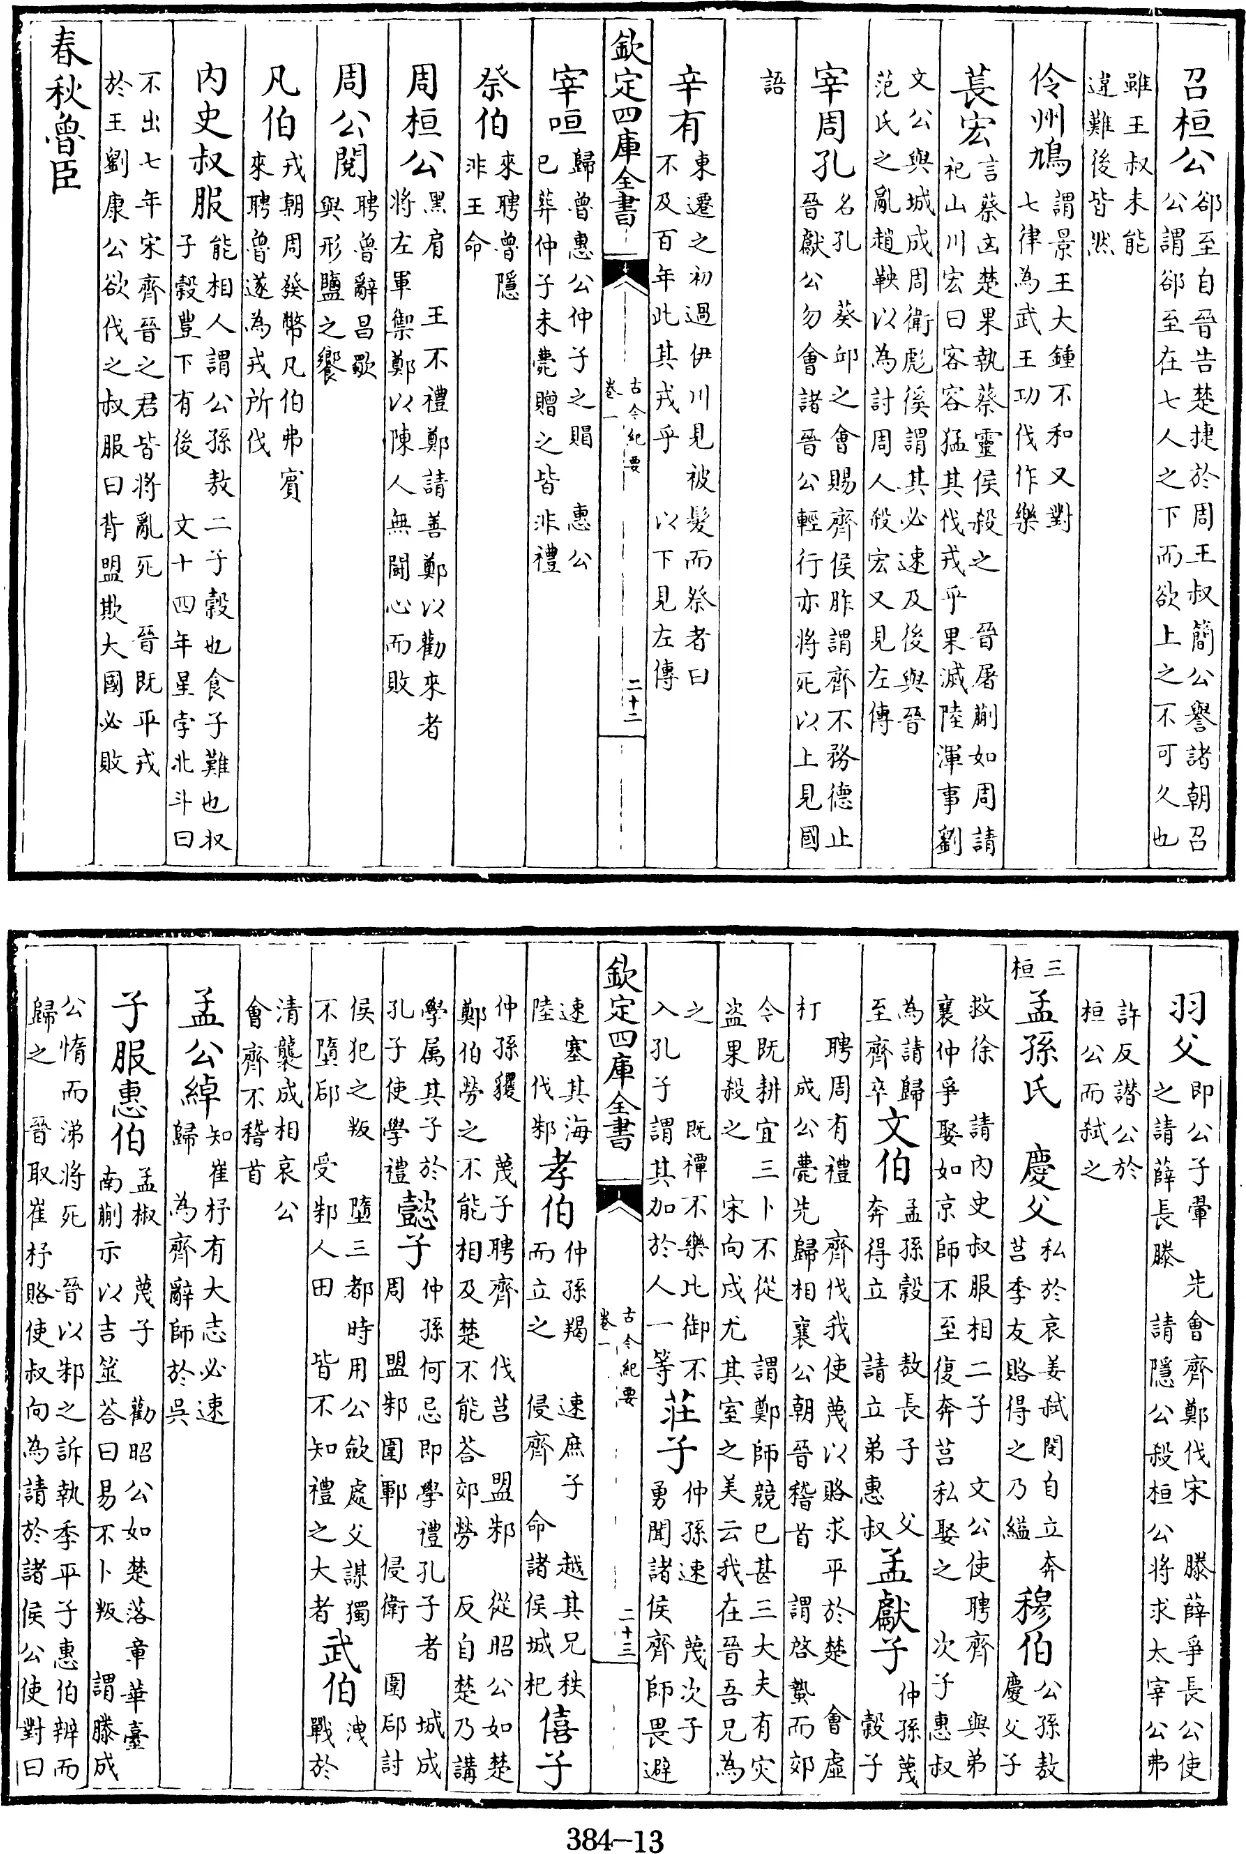 召桓公
郤至自晉告楚捷於周王叔簡公譽諸朝召
公謂郤至在七人之下而欲上之不可久也
雖王叔未能
違難後皆然
伶州鳩
謂景王大鍾不和又對
七律為武王功伐作樂
萇宏
言蔡凶楚果執蔡靈侯殺之　晉屠蒯如周請
祀山川宏曰容容猛其伐戎乎果滅陸渾事劉
文公與城成周衛彪傒謂其必速及後與晉
范氏之亂趙鞅以為討周人殺宏又見左傳
宰周孔
名孔　葵邱之會賜齊侯胙謂齊不務德止
晉獻公勿會諸晉公輕行亦將死以上見國
語
辛有
東遷之初過伊川見被髮而祭者曰
不及百年此其戎乎　以下見左傳
欽定四庫全書
古今紀要
卷一
二十二
宰咺
歸魯惠公仲子之賵　惠公
已葬仲子未薨贈之皆非禮
祭伯
來聘魯隱
非王命
周桓公
黑肩　王不禮鄭請善鄭以勸來者
將左軍禦鄭以陳人無鬪心而敗
周公閱
聘魯辭昌歜
與形鹽之饗
凡伯
戎朝周發幣凡伯弗賓
來聘魯遂為戎所伐
內史叔服
能相人謂公孫敖二子穀也食子難也収
子穀豐下有後　文十四年星孛北斗曰
不出七年宋齊晉之君皆將亂死　晉既平戎
於王劉康公欲伐之叔服曰背盟欺大國必敗
春秋魯臣
羽父
即公子翬　先會齊鄭伐宋　滕薛爭長公使
之請薛長滕　請隱公殺桓公將求太宰公弗
許反譖公於
桓公而弑之
三桓
孟孫氏　慶父
私於哀姜弑閔自立奔
莒季友賂得之乃縊
穆伯
公孫敖
慶父子
救徐　請內史叔服相二子　文公使聘齊　與弟
襄仲爭娶如京師不至復奔莒私娶之　次子惠叔
為請歸
至齊卒
文伯
孟孫穀　敖長子　父
奔得立　請立弟惠叔
孟獻子
仲孫蔑
穀子
聘周有禮　齊伐我使蔑以賂求平於楚　會虛
朾　成公薨先歸相襄公朝晉稽首　謂啓蟄而郊
今既耕宜三卜不從　謂鄭師競已甚三大夫有災
盜果殺之　宋向戌尤其室之美云我在晉吾兄為
之　既禫不樂比御不
入孔子謂其加於人一等
莊子
仲孫速　蔑次子
勇聞諸侯齊師畏避
欽定四庫全書
古今紀要
卷一
二十三
速塞其海
陸　伐邾
孝伯
仲孫羯　速庶子　越其兄秩
而立之　侵齊　命諸侯城杞
僖子
仲孫貜　蔑子聘齊　伐莒　盟邾　從昭公如楚
鄭伯勞之不能相及楚不能荅郊勞　反自楚乃講
學属其子於
孔子使學禮
懿子
仲孫何忌即學禮孔子者　城成
周　盟邾圍鄆　侵衛　圍郈討
侯犯之叛　墮三都時用公斂處父謀獨
不墮郈　受邾人田　皆不知禮之大者
武伯
洩
戰於
清襲成相哀公
會齊不稽首
孟公綽
知崔杼有大志必速
歸　為齊辭師於吳
子服惠伯
孟椒　蔑子　勸昭公如楚落章華臺
南蒯示以吉筮荅曰易不卜叛　謂滕成
公惰而涕將死　晉以邾之訴執季平子惠伯辨而
歸之　晉取崔杼賂使叔向為請於諸侯公使對曰
384-13